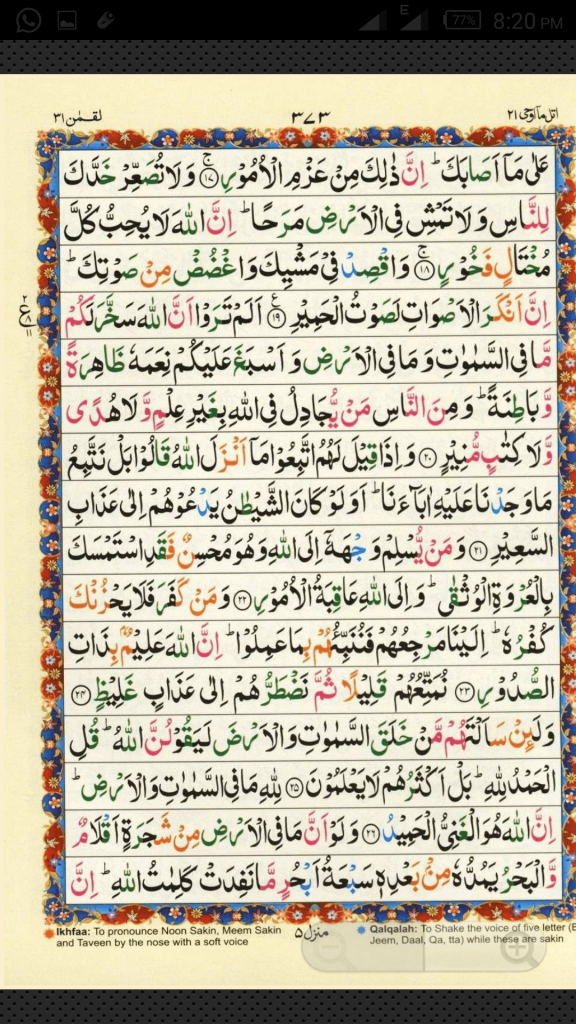 E 77% 8:20 PM
اتل مآ اوحی ۲۱ ۳۷۳ لقمٰن ۳۱
عَلٰی مَاۤ اَصَابَكَ ؕ اِنَّ ذٰلِكَ مِنْ عَزْمِ الْاُمُوْرِ ۚ‏﴿۱۷﴾ وَ لَا تُصَعِّرْ خَدَّكَ
لِلنَّاسِ وَ لَا تَمْشِ فِی الْاَرْضِ مَرَحًا ؕ اِنَّ اللّٰهَ لَا یُحِبُّ كُلَّ
مُخْتَالٍ فَخُوْرٍ ۚ‏﴿۱۸﴾ وَ اقْصِدْ فِیْ مَشْیِكَ وَ اغْضُضْ مِنْ صَوْتِكَ ؕ
اِنَّ اَنْكَرَ الْاَصْوَاتِ لَصَوْتُ الْحَمِیْرِ ﴿۱۹﴾ ع اَلَمْ تَرَوْا اَنَّ اللّٰهَ سَخَّرَ لَكُمْ
ع ۲ ۸ ۱۱
مَّا فِی السَّمٰوٰتِ وَ مَا فِی الْاَرْضِ وَ اَسْبَغَ عَلَیْكُمْ نِعَمَهٗ ظَاهِرَةً
وَّ بَاطِنَةً ؕ وَ مِنَ النَّاسِ مَنْ یُّجَادِلُ فِی اللّٰهِ بِغَیْرِ عِلْمٍ وَّ لَا هُدًی
وَّ لَا كِتٰبٍ مُّنِیْرٍ ﴿۲۰﴾ وَ اِذَا قِیْلَ لَهُمُ اتَّبِعُوْا مَاۤ اَنْزَلَ اللّٰهُ قَالُوْا بَلْ نَتَّبِعُ
مَا وَجَدْنَا عَلَیْهِ اٰبَآءَنَا ؕ اَوَ لَوْ كَانَ الشَّیْطٰنُ یَدْعُوْهُمْ اِلٰی عَذَابِ
السَّعِیْرِ ﴿۲۱﴾ وَ مَنْ یُّسْلِمْ وَجْهَهٗۤ اِلَی اللّٰهِ وَ هُوَ مُحْسِنٌ فَقَدِ اسْتَمْسَكَ
بِالْعُرْوَةِ الْوُثْقٰی ؕ وَ اِلَی اللّٰهِ عَاقِبَةُ الْاُمُوْرِ ﴿۲۲﴾ وَ مَنْ كَفَرَ فَلَا یَحْزُنْكَ
كُفْرُهٗ ؕ اِلَیْنَا مَرْجِعُهُمْ فَنُنَبِّئُهُمْ بِمَا عَمِلُوْا ؕ اِنَّ اللّٰهَ عَلِیْمٌۢ بِذَاتِ
الصُّدُوْرِ ﴿۲۳﴾ نُمَتِّعُهُمْ قَلِیْلًا ثُمَّ نَضْطَرُّهُمْ اِلٰی عَذَابٍ غَلِیْظٍ ﴿۲۴﴾
وَ لَىِٕنْ سَاَلْتَهُمْ مَّنْ خَلَقَ السَّمٰوٰتِ وَ الْاَرْضَ لَیَقُوْلُنَّ اللّٰهُ ؕ قُلِ
الْحَمْدُ لِلّٰهِ ؕ بَلْ اَكْثَرُهُمْ لَا یَعْلَمُوْنَ ﴿۲۵﴾ لِلّٰهِ مَا فِی السَّمٰوٰتِ وَ الْاَرْضِ ؕ
اِنَّ اللّٰهَ هُوَ الْغَنِیُّ الْحَمِیْدُ ﴿۲۶﴾ وَ لَوْ اَنَّ مَا فِی الْاَرْضِ مِنْ شَجَرَةٍ اَقْلَامٌ
وَّ الْبَحْرُ یَمُدُّهٗ مِنْۢ بَعْدِهٖ سَبْعَةُ اَبْحُرٍ مَّا نَفِدَتْ كَلِمٰتُ اللّٰهِ ؕ اِنَّ
منزل ۵
Ikhfaa: To pronounce Noon Sakin, Meem Sakin
and Taveen by the nose with a soft voice
Qalqalah: To Shake the voice of five letter (B
Jeem, Daal, Qa, tta) while these are sakin